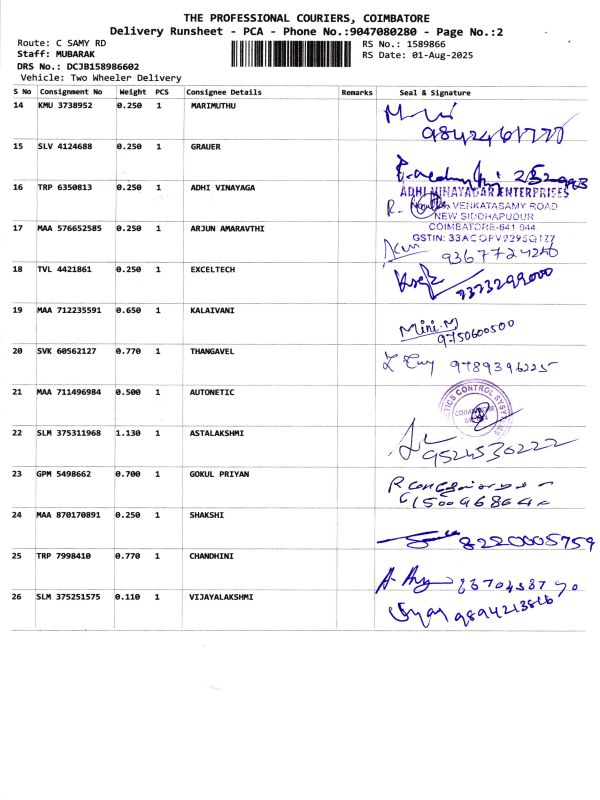 THE PROFESSIONAL COURIERS, COIMBATORE
Delivery Runsheet - PCA - Phone No.:9047080280 - Page No.:2
Route: C SAMY RD
RS No.: 1589866
Staff: MUBARAK
RS Date: 01-Aug-2025
DRS No.: DCJB158986602
Vehicle: Two Wheeler Delivery
S No Consignment No Weight PCS Consignee Details Remarks Seal & Signature
14 KMU 3738952 0.250 1 MARIMUTHU
9842461770
15 SLV 4124688 0.250 1 GRAUER
16 TRP 6350813 0.250 1 ADHI VINAYAGA
ADHI VINAYAGAR ENTERPRISES
VENKATASAMY ROAD
NEW SIDDHAPUDUR
17 MAA 576652585 0.250 1 ARJUN AMARAVTHI
COIMBATORE-641 044
9367724256
18 TVL 4421861 0.250 1 EXCELTECH
9373299000
19 MAA 712235591 0.650 1 KALAIVANI
Mini.M
9750600500
20 SVK 60562127 0.770 1 THANGAVEL
9789396225
21 MAA 711496984 0.500 1 AUTONETIC
22 SLM 375311968 1.130 1 ASTALAKSHMI
9524530222
23 GPM 5498662 0.700 1 GOKUL PRIYAN
24 MAA 870170891 0.250 1 SHAKSHI
8220005759
25 TRP 7998410 0.770 1 CHANDHINI
26 SLM 375251575 0.110 1 VIJAYALAKSHMI
9894213816